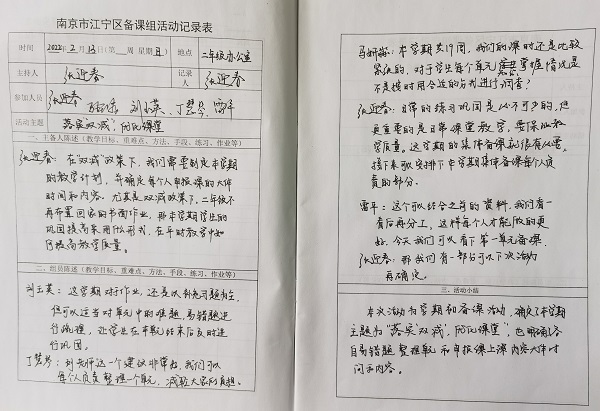 南京市江宁区备课组活动记录表
时间 2022年2月13日(第 周 星期日) 地点 二年级办公室
主持人 张迎春 记录人 张迎春
参加人员 张迎春 刘玉英 丁慧琴 雷平
活动主题 落实"双减",向化课堂
一、主备人陈述(教学目标、重难点、方法、手段、练习、作业等)
张迎春:在双减政策下,我们需要制定本学期
的教学计划,并确定每个人申报课的大体
时间和内容。尤其是双减政策下,二年级不
再布置回家的书面作业,那本学期学生的
巩固提高采用什么形式,在平时教学中如
何提高教学质量。
二、组员陈述(教学目标、重难点、方法、手段、练习、作业等)
刘玉英:这学期对于作业,还是以补充习题为主,
但可以适当对单元中的难题,易错题进
行梳理,让学生在单元结束后及时进
行巩固。
丁慧琴:刘老师这一个建议非常好,我们可以
每个人负责整理一个单元,减轻大家的负担。
马妍:本学期共19周,我们的课时还是比较
紧张的,对于学生每个单元掌握情况是
不是按时用合适的与我进行调查?
张迎春:日常的练习巩固是必不可少的,但
更重要的是日常课堂教学,要保证教
学质量。这学期的集体备课就很有必要。
接下来可以安排下本学期集体备课每个人负
责的部分。
雷平:这个可以结合之前的资料,我们看一
看后再分工,这样每个人才能做的更
好。今天我们可以看下第一单元备课。
张迎春:那我们有一部分可以下次活动
再确定。
三、活动小结
本次活动为学期初备课活动,确定了本学期
主题为"落实'双减',向化课堂",也明确了各
自易错题整理单元和申报课上课内容大体时
间和内容。